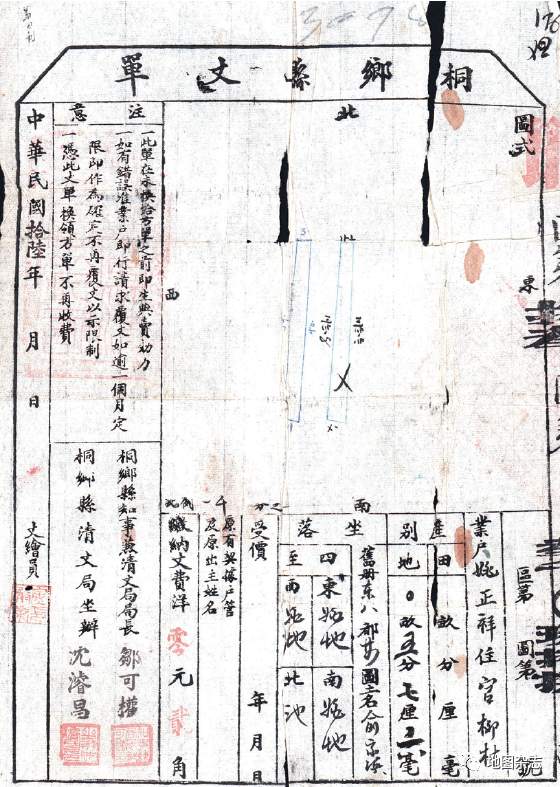 3094
桐鄉縣丈單
圖式
北
東
西
南
區第 圖第 號
業戶姚正祥住官柳村
產 田 畝 分 厘 毫
別 地 〇畝五分七厘二毫
坐落
四至
東 姚地
南 姚地
西 姚地
北 池
受價
年 月 日
原有契據戶管
及原出主姓名
繳納丈費洋零元貳角
注意
一此單在未換給方單之前即生典賣効力
一如有錯誤准業戶即行請求覆丈如逾一個月定
限即作為確定不再覆丈以示限制
一憑此丈單換領方單不再收費
桐鄉縣知事兼清丈局局長 鄒可權
桐鄉縣清丈局坐辦 沈濬昌
中華民國拾陸年 月 日
丈繪員
地图杂志